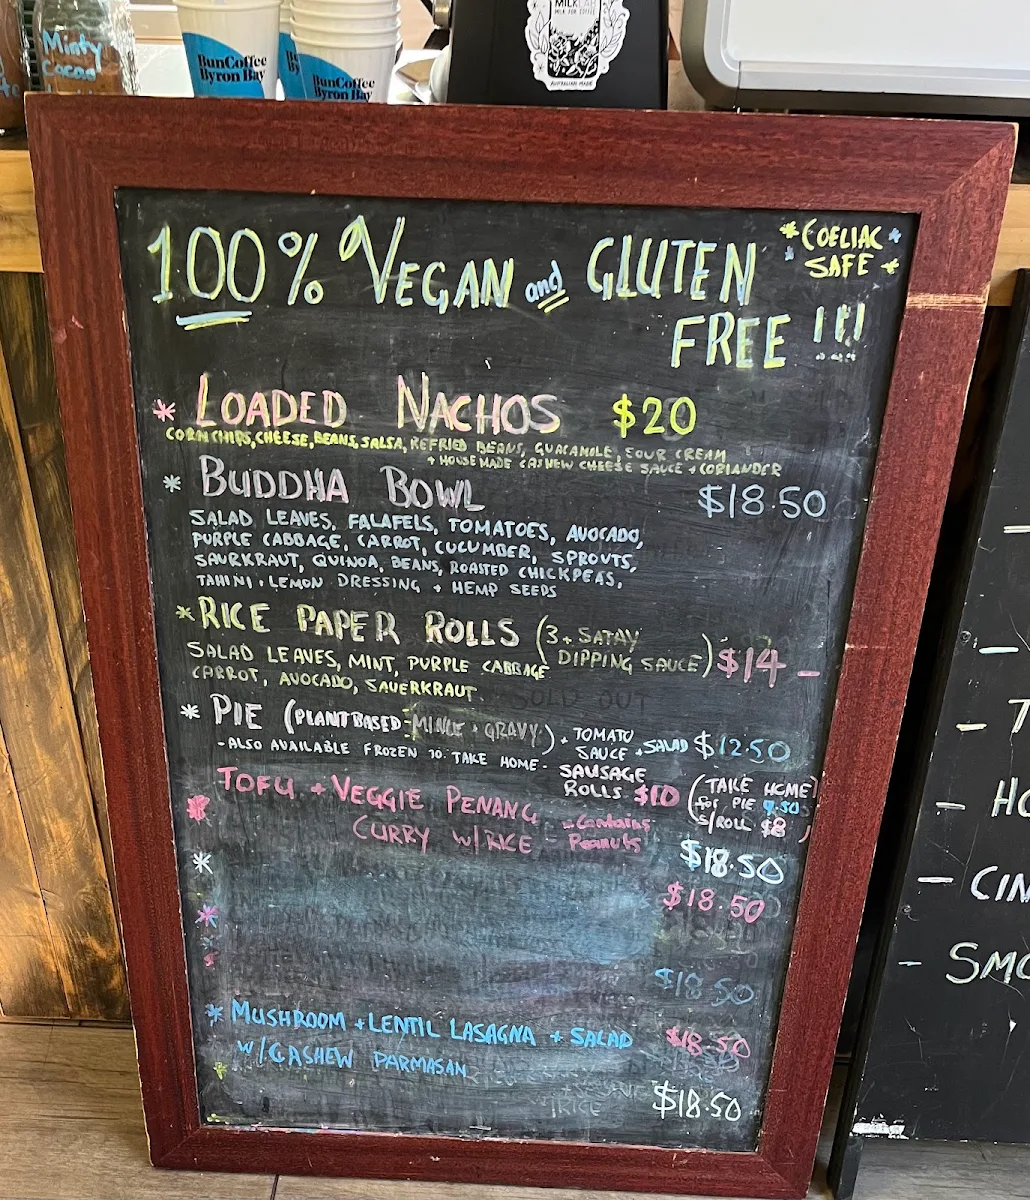 Minty
Cocoa
BunCoffee
Byron Bay
BunCoffee
Byron Bay
MILKLAB
MILK FOR COFFEE
AUSTRALIAN MADE
100% VEGAN and GLUTEN
FREE !!!
* COELIAC *
* SAFE *
* LOADED NACHOS $20
CORN CHIPS, CHEESE, BEANS, SALSA, REFRIED BEANS, GUACAMOLE, SOUR CREAM
+ HOUSE MADE CASHEW CHEESE SAUCE + CORIANDER
* BUDDHA BOWL $18.50
SALAD LEAVES, FALAFELS, TOMATOES, AVOCADO,
PURPLE CABBAGE, CARROT, CUCUMBER, SPROUTS,
SAURKRAUT, QUINOA, BEANS, ROASTED CHICKPEAS,
TAHINI + LEMON DRESSING + HEMP SEEDS
* RICE PAPER ROLLS (3 + SATAY
DIPPING SAUCE) $14 -
SALAD LEAVES, MINT, PURPLE CABBAGE
CARROT, AVOCADO, SAUERKRAUT
SOLD OUT
* PIE (PLANT BASED MINCE + GRAVY) + TOMATO
SAUCE + SALAD $12.50
- ALSO AVAILABLE FROZEN TO TAKE HOME -
SAUSAGE
ROLLS $10
(TAKE HOME
for PIE 9.50
S/ROLL $8)
* TOFU + VEGGIE PENANG
CURRY W/RICE - Contains
Peanuts
* $18.50
* $18.50
$18.50
* MUSHROOM + LENTIL LASAGNA + SALAD $18.50
W/CASHEW PARMASAN
RICE
$18.50
- HO
- CIN
- SMO